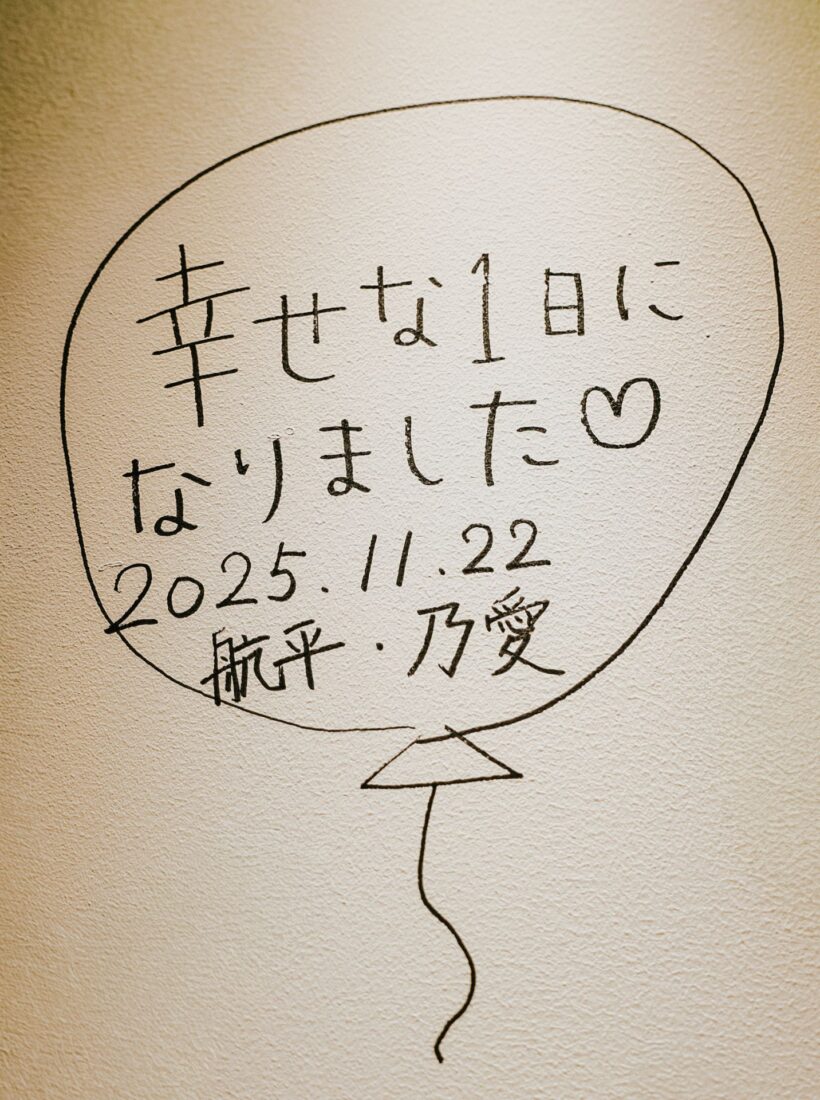 幸せな1日に
なりました♡
2025.11.22
航平・乃愛